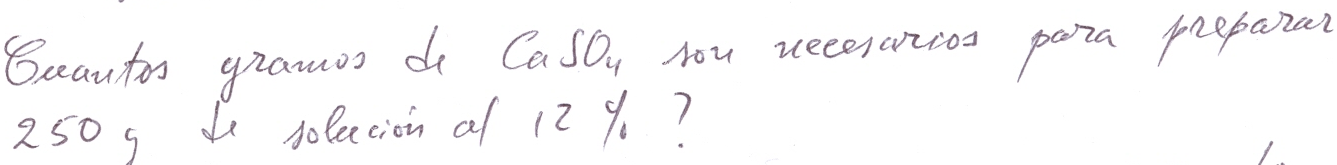 Cuantos gramos de CaSO₄ son necesarios para preparar
250 g de solución al 12 % ?